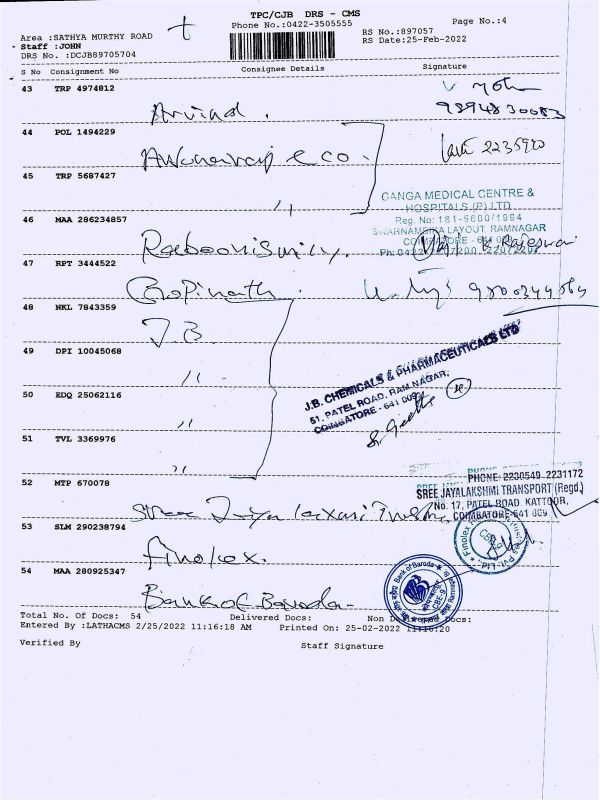 TPC/CJB DRS - CMS
Phone No.:0422-3505555
Page No.:4
Area :SATHYA MURTHY ROAD
RS No.:897057
Staff :JOHN
RS Date:25-Feb-2022
DRS No. :DCJB89705704
S No Consignment No Consignee Details Signature
43 TRP 4974812
Arvind .
9894830083
44 POL 1494229
2235920
& co.
45 TRP 5687427
"
GANGA MEDICAL CENTRE &
HOSPITALS (P) LTD
Reg. No: 181-5600/1994
SWARNAMBIKA LAYOUT, RAMNAGAR
46 MAA 286234857
COIMBATORE - 641 009
47 RPT 3444522
Gopinath .
48 NKL 7843359
J.B.
49 DPI 10045068
"
J.B. CHEMICALS & PHARMACEUTICALS LTD
51, PATEL ROAD, RAM NAGAR,
COIMBATORE - 641 009
50 EDQ 25062116
"
S. Geetha
51 TVL 3369976
"
PHONE: 2230549 2231172
52 MTP 670078
SREE JAYALAKSHMI TRANSPORT (Regd.)
No. 17, PATEL ROAD, KATTOOR,
COIMBATORE-641 009
Sree
53 SLM 290238794
Finolex.
Finolex
CBE-9
54 MAA 280925347
Bank of Baroda
Bank of Baroda
CBE-9
Total No. Of Docs: 54 Delivered Docs: Non Delivered Docs:
Entered By :LATHACMS 2/25/2022 11:16:18 AM Printed On: 25-02-2022 11:16:20
Verified By Staff Signature